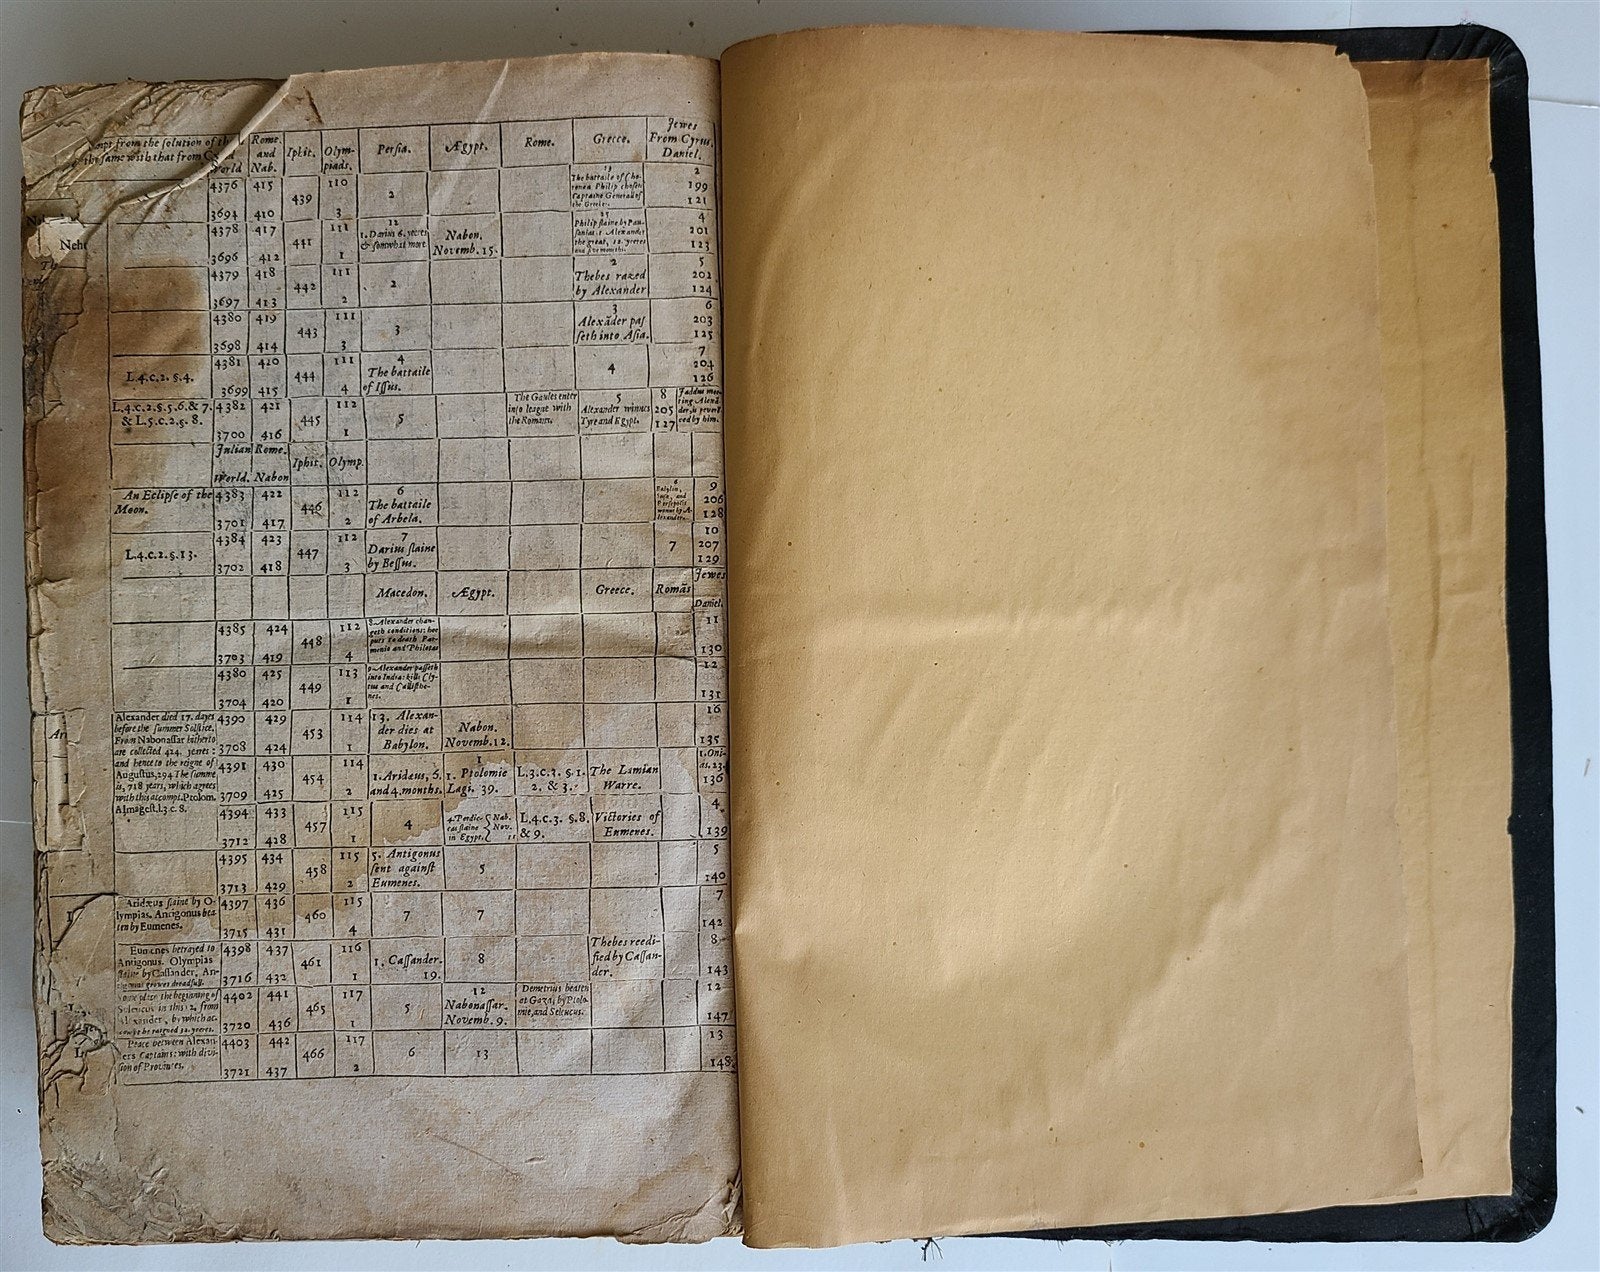 from the ſolution of the
the ſame with that from
World
Rome
and
Nab.
Iphit.
Olym-
piads.
Perſia.
Ægypt.
Rome.
Greece.
Jewes
From Cyrus.
Daniel.
4376 415 439 110 2 19 2
3694 410 3
The battaile of Che-
ronea Philip choſen
Captaine Generall of
the Greekes.
199
121
4378 417 441 111 12 4
3696 412 1
1. Darius 6. yeeres
& ſomwhat more
Nabon.
Novemb. 15.
Philip ſlaine by Pau-
ſanias. 1 Alexander
the great, 12. yeeres
201
123
4379 418 442 111 2 2 5
3697 413 2
Thebes razed
by Alexander
202
124
4380 419 443 111 3 3 6
3698 414 3
Alexāder paſ
ſeth into Aſia.
203
125
L.4.c.2. §.4.
4381 420 444 111 4 4 7
3699 415 4
The battaile
of Iſſus.
204
126
L.4.c.2.§.5.6.& 7.
& L.5.c.2.§. 8.
4382 421 445 112 5 5 8
3700 416 1
The Gaules enter
into league with
the Romans.
Alexander winnes
Tyre and Egypt.
205
127
Jaddus mee-
ting Alexā-
der, is rever-
ced by him.
Julian Rome.
Iphit. Olymp.
World. Nabon
An Eclipſe of the
Moon.
4383 422 446 112 6 9
3701 417 2
The battaile
of Arbela.
8
Babylon,
Suſa, and
Perſepolis
wonne by A-
lexander.
206
128
L.4.c.2.§.13.
4384 423 447 112 7 7 10
3702 418 3
Darius ſlaine
by Beſſus.
207
129
Macedon. Ægypt. Greece. Romās Jewes
Daniel.
4385 424 448 112 11
3703 419 4
8. Alexander chan-
geth conditions: hee
puts to death Par-
menio and Philotas
130
4380 425 449 113 12
3704 420 1
9. Alexander paſſeth
into India: kills Cly-
tus and Calliſthe-
nes.
131
Alexander died 17. dayes
before the ſummer Solſtice.
From Nabonaſſar hitherto
are collected 424. yeres:
and hence to the reigne of
Auguſtus, 294 The ſumme
is, 718 years, which agrees
with this accompt. Ptolom.
Almageſt.l.3.c.8.
4390 429 453 114 16
3708 424 1
13. Alexan-
der dies at
Babylon.
Nabon.
Novemb.12.
135
4391 430 454 114 1
3709 425 2
1. Aridæus, 6.
and 4. months.
1. Ptolomie
Lagi. 39.
L.3.c.2. §.1.
2. & 3.
The Lamian
Warre.
1. Oni-
as. 23.
136
4394 433 457 115 4 4
3712 428 1
4. Perdic-
cas ſlaine
in Egypt.
Nab.
Nov.
11
L.4.c.3. §.8.
& 9.
Victories of
Eumenes.
139
4395 434 458 115 5 5
3713 429 2
5. Antigonus
ſent againſt
Eumenes.
140
Aridæus ſlaine by O-
lympias. Antigonus bea-
ten by Eumenes.
4397 436 460 115 7 7 7
3715 431 4
142
Eumenes betrayed to
Antigonus. Olympias
ſlaine by Caſſander, An-
tigonus growes dreadfull.
4398 437 461 116 8 8
3716 432 1
1. Caſſander.
19.
Thebes reedi-
fied by Caſſan-
der.
143
Some place the beginning of
Seleucus in this 12, from
Alexander, by which ac-
compt he raigned 32. yeeres.
4402 441 465 117 5 12 12
3720 436 1
Nabonaſſar.
Novemb. 9.
Demetrius beaten
at Gaza, by Ptolo-
mie, and Seleucus.
147
Peace between Alexan-
ders Captains: with divi-
ſion of Provinces.
4403 442 466 117 6 13 13
3721 437 2
148
Nehe